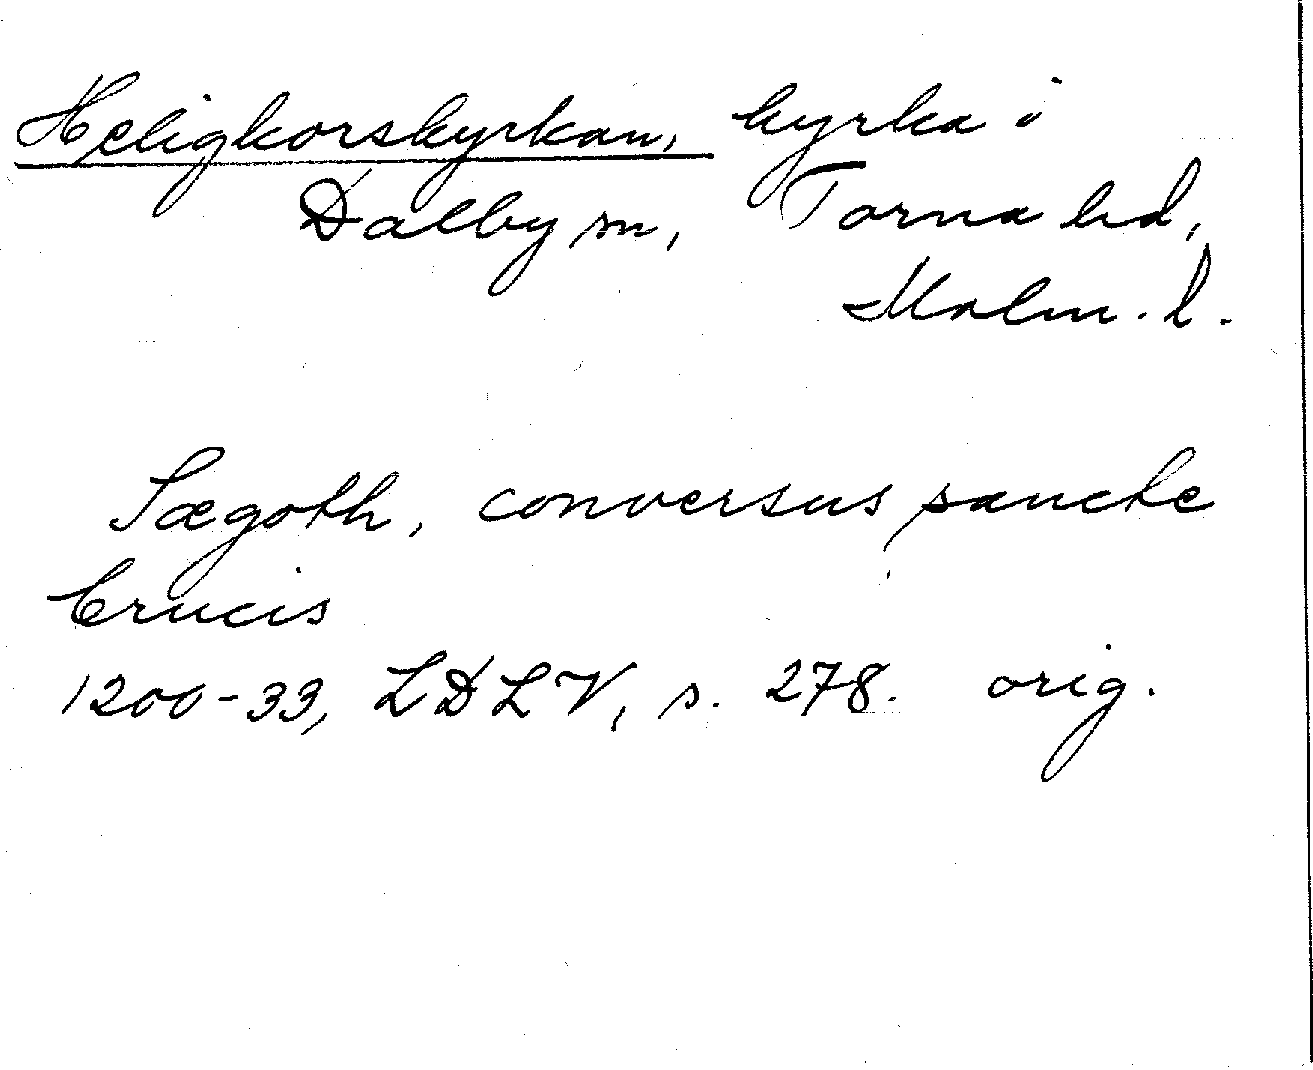 Heligkorskyrkan, kyrka i
Dalby sn, Torna hd,
Malm. l.
Sægoth, conversus sancte
Crucis
1200-33, LDLV, s. 278. orig.